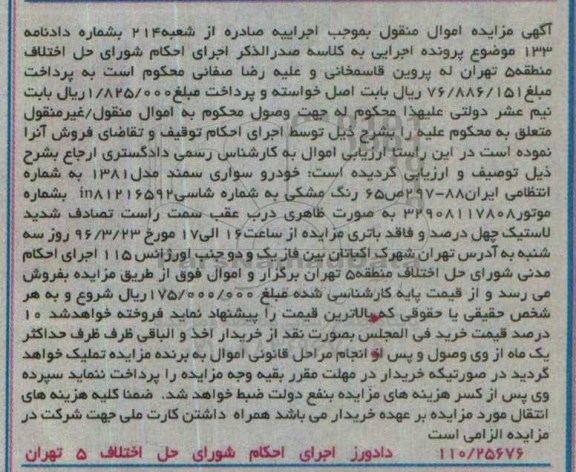 آگهی مزایده اموال منقول بموجب اجراییه صادره از شعبه۲۱۴ بشماره دادنامه
۱۳۳ موضوع پرونده اجرایی به کلاسه صدرالذکر اجرای احکام شورای حل اختلاف
منطقه۵ تهران له پروین قاسمخانی و علیه رضا صفائی محکوم است به پرداخت
مبلغ۷۶/۸۸۶/۱۵۱ ریال بابت اصل خواسته و پرداخت مبلغ۱/۸۲۵/۰۰۰ریال بابت
نیم عشر دولتی علیهذا محکوم له جهت وصول محکوم به اموال منقول/غیرمنقول
متعلق به محکوم علیه را بشرح ذیل توسط اجرای احکام توقیف و تقاضای فروش آنرا
نموده است در این راستا ارزیابی اموال به کارشناس رسمی دادگستری ارجاع بشرح
ذیل توصیف و ارزیابی گردیده است: خودرو سواری سمند مدل۱۳۸۱ به شماره
انتظامی ایران۸۸-۲۹۷ص۶۵ رنگ مشکی به شماره شاسی in۸۱۲۱۶۵۹۲ بشماره
موتور۳۲۹۰۸۱۱۷۸۰۸ به صورت ظاهری درب عقب سمت راست تصادف شدید
لاستیک چهل درصد و فاقد باتری مزایده از ساعت۱۶ الی۱۷ مورخ ۹۶/۳/۲۳ روز سه
شنبه به آدرس تهران شهرک اکباتان بین فاز یک و دو جنب اورژانس ۱۱۵ اجرای احکام
مدنی شورای حل اختلاف منطقه۵ تهران برگزار و اموال فوق از طریق مزایده بفروش
می رسد و از قیمت پایه کارشناسی شده مبلغ ۱۷۵/۰۰۰/۰۰۰ریال شروع و به هر
شخص حقیقی یا حقوقی که بالاترین قیمت را پیشنهاد نماید فروخته خواهدشد ۱۰
درصد قیمت خرید فی المجلس بصورت نقد از خریدار اخذ و الباقی ظرف ظرف حداکثر
یک ماه از وی وصول و پس از انجام مراحل قانونی اموال به برنده مزایده تملیک خواهد
گردید در صورتیکه خریدار در مهلت مقرر بقیه وجه مزایده را پرداخت ننماید سپرده
وی پس از کسر هزینه های مزایده بنفع دولت ضبط خواهد شد. ضمنا کلیه هزینه های
انتقال مورد مزایده بر عهده خریدار می باشد همراه داشتن کارت ملی جهت شرکت در
مزایده الزامی است
۱۱۰/۲۵۶۷۶ دادورز اجرای احکام شورای حل اختلاف ۵ تهران